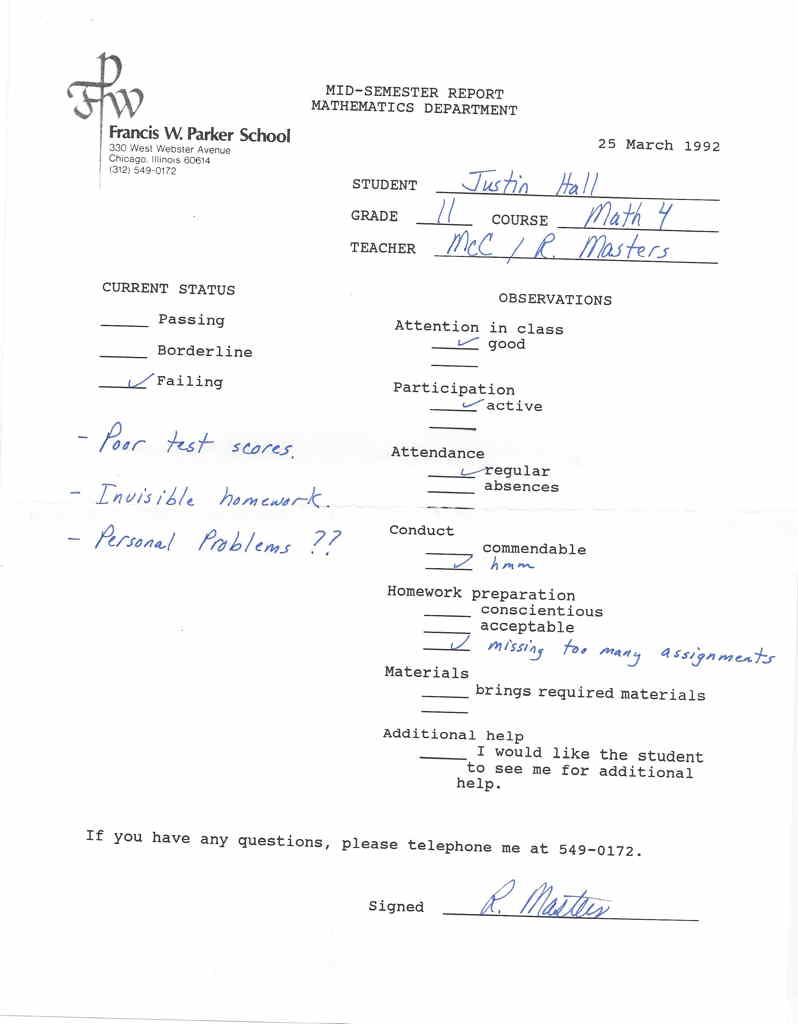 FPW
Francis W. Parker School
330 West Webster Avenue
Chicago, Illinois 60614
(312) 549-0172
MID-SEMESTER REPORT
MATHEMATICS DEPARTMENT
25 March 1992
STUDENT Justin Hall
GRADE 11 COURSE Math 4
TEACHER McC / R. Masters
CURRENT STATUS
____ Passing
____ Borderline
✓ Failing
- Poor test scores.
- Invisible homework.
- Personal Problems ??
OBSERVATIONS
Attention in class
✓ good
____
Participation
✓ active
____
Attendance
✓ regular
____ absences
____
Conduct
____ commendable
✓ hmm
Homework preparation
____ conscientious
____ acceptable
✓ missing too many assignments
Materials
____ brings required materials
____
Additional help
____ I would like the student
to see me for additional
help.
If you have any questions, please telephone me at 549-0172.
Signed R. Masters